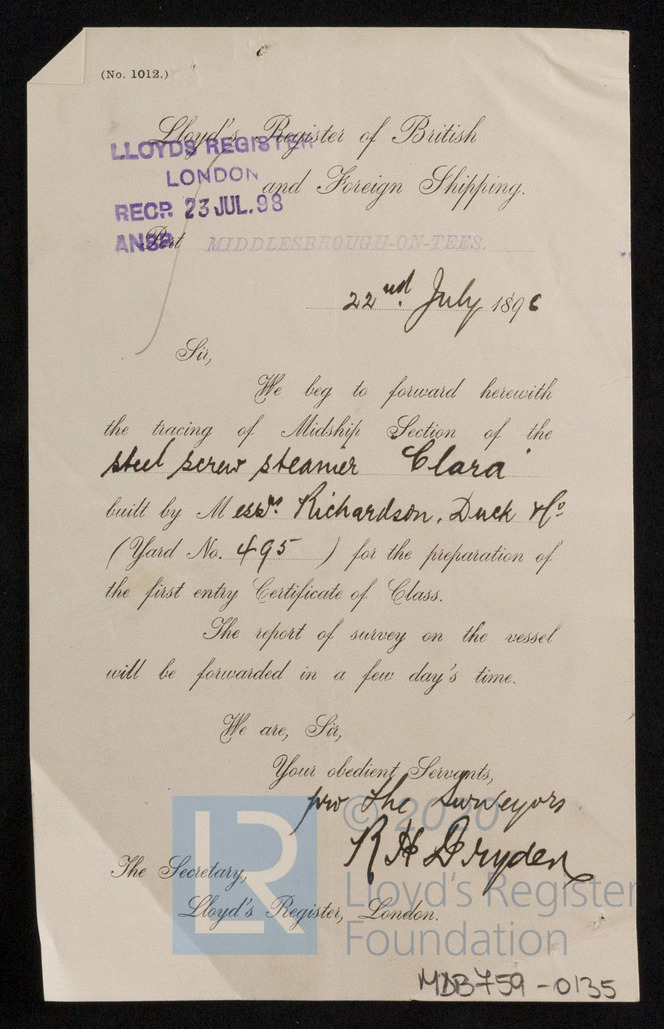 (No. 1012.)
Lloyd's Register of British
and Foreign Shipping.
LLOYDS REGISTER
LONDON
RECD. 23 JUL. 98
ANSD.
Port MIDDLESBROUGH-ON-TEES.
22nd. July 1898
Sir,
We beg to forward herewith
the tracing of Midship Section of the
steel screw steamer "Clara"
built by Messrs. Richardson, Duck & Co
(Yard No. 495) for the preparation of
the first entry Certificate of Class.
The report of survey on the vessel
will be forwarded in a few day's time.
We are, Sir,
Your obedient Servants,
pro the Surveyors
R H Dryden
The Secretary,
Lloyd's Register, London.
LR
© 2020
Lloyd's Register
Foundation
MDB759-0135